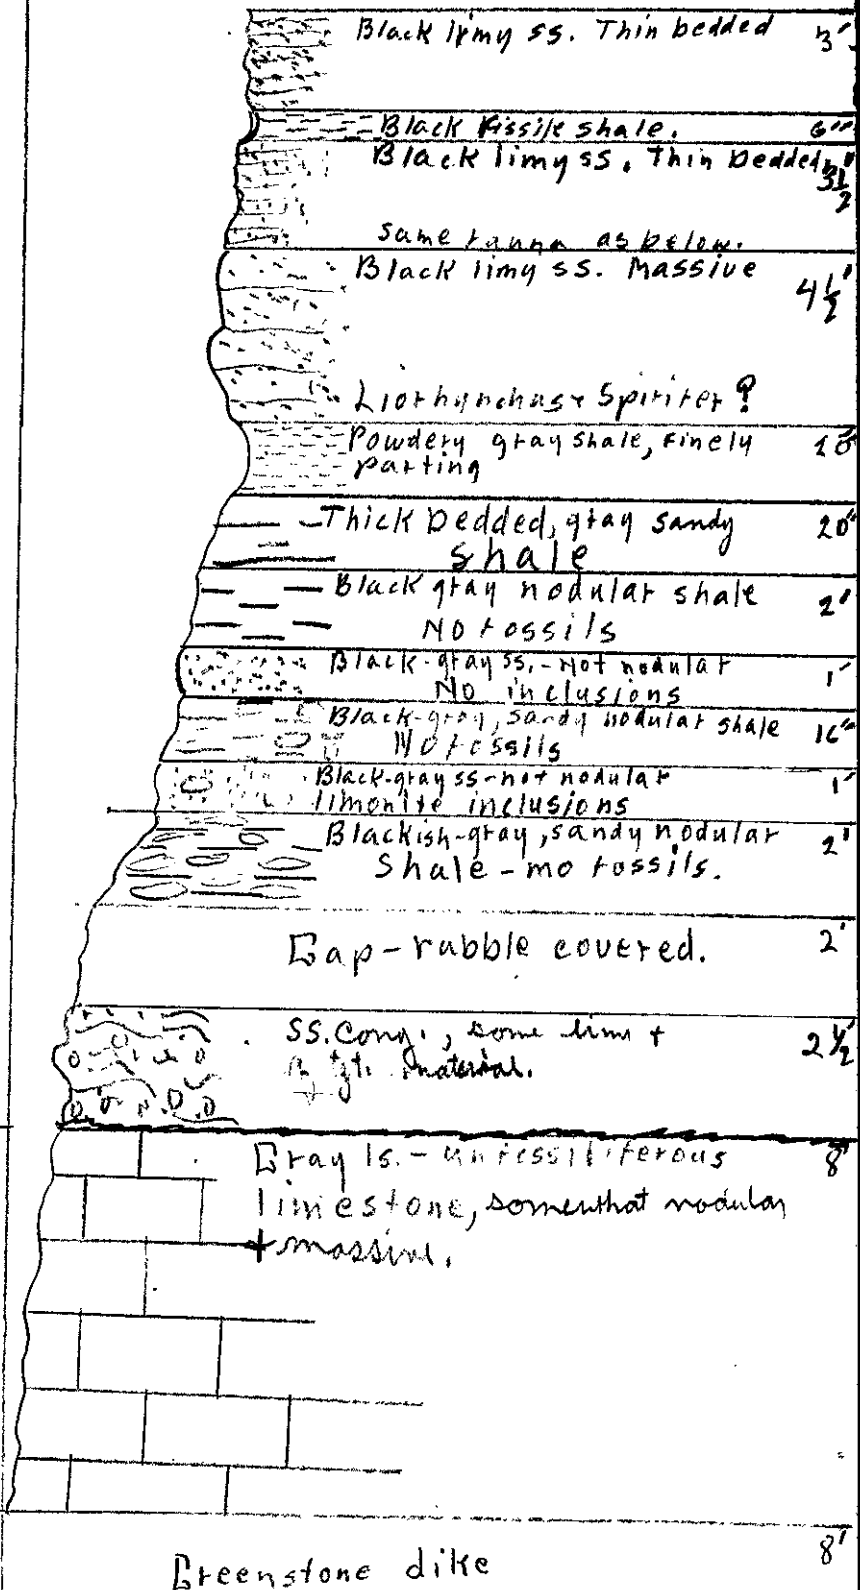 Black limy ss. Thin bedded 3'
Black Fissile shale. 6"
Black limy ss. Thin bedded. 3½'
same fauna as below.
Black limy ss. Massive 4½'
Liorhynchus + Spirifer?
Powdery gray shale, finely
parting
Thick bedded, gray sandy 20"
shale
Black gray nodular shale 2'
No fossils
Black-gray ss.-Not nodular 1'
No inclusions
Black-gray, sandy nodular shale 16"
No fossils
Black-gray ss-not nodular 1'
limonite inclusions
Blackish-gray, sandy nodular 2'
Shale-mo fossils.
Gap-rubble covered. 2'
SS. Cong., some lime + 2½'
material.
Gray ls.-unfossiliferous 8'
limestone, somewhat nodular
+ massive.
Greenstone dike 8'